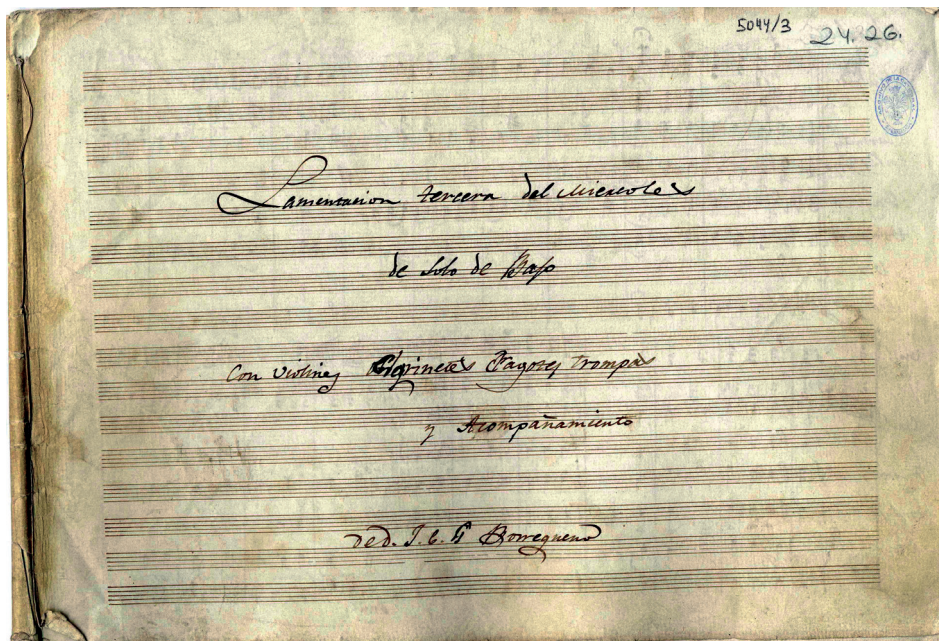 5044/3 24. 26.
Lamentacion tercera del Miercoles
de Solo de Bajo
Con violines Clarinetes Fagotes trompas
y Acompañamiento
de d. J. Borreguero